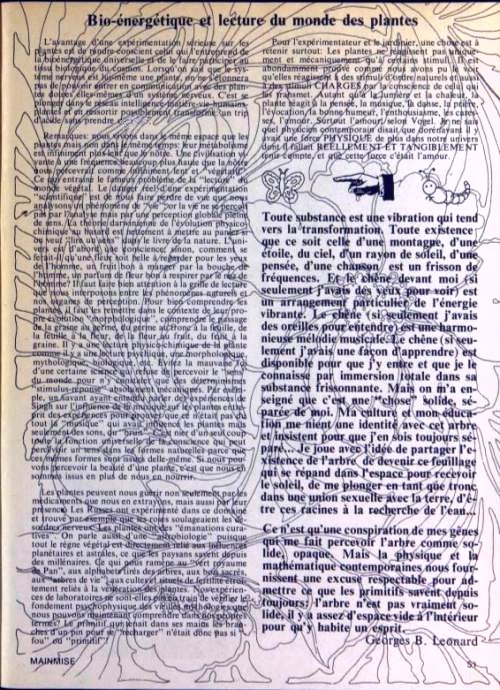 Bio-énergétique et lecture du monde des plantes
L'avantage d'une expérimentation sérieuse sur les
plantes est de rendre conscient celui qui l'entreprend de
la bioénergétique universelle et de le faire participer au
tissu biologique du cosmos. Lorsqu'on sait que le sys-
tème nerveux est lui-même une plante, on ne s'étonnera
pas de pouvoir entrer en communication avec des plan-
tes douées elles-mêmes d'un système nerveux. C'est se
plonger dans le réseau intelligent matière-vie-humains-
plantes et en ressortir complètement transformé, un trip
d'acide sans prendre.
Remarques: nous vivons dans le même espace que les
plantes mais non dans le même temps: leur métabolisme
est infiniment plus lent que le nôtre. Une civilisation vi-
vante à une fréquence beaucoup plus haute que la nôtre
nous percevrait comme infiniment lent et "végétatif".
Ceci nous amène le fameux problème de la "lecture" du
monde végétal. Le danger réel d'une expérimentation
"scientifique" est de nous faire perdre de vue que nous
analysons un phénomène de "vie" or la vie ne se perçoit
pas par l'analyse mais par une perception globale pleine
de sens. La théorie darwinienne de l'évolution physico-
chimique
ou veut "lire un sens" dans le livre de la nature. L'uni-
vers est d'abord une conscience sinon, comment se
ferait-il qu'une fleur soit belle à regarder pour les yeux
de l'homme, un fruit bon à manger par la bouche de
l'homme, un parfum de fleur bon à respirer par le nez de
l'homme? Il faut faire bien attention à la grille de lecture
que nous interposons entre les phénomènes naturels et
nos organes de perception. Pour bien comprendre les
plantes, il faut les remettre dans le contexte de leur pro-
pre évolution "morphologique", comprendre le passage
de la graine au germe, du germe au tronc, à la feuille, de
la feuille à la fleur, de la fleur au fruit, du fruit à la
graine. Il y a une lecture physico-chimique de la plante
comme il y a une lecture poétique, une morphologique,
mythologique, biologique, etc. Évitez la mauvaise foi
d'une certaine science qui refuse de percevoir le "sens"
du monde pour n'y constater que des déterminismes
"stimulus-réponse" absolument mécaniques. Par exem-
ple, un savant ayant entendu parler des expériences de
Singh sur l'influence de la musique sur les plantes entre-
prit des expériences pour prouver que ce n'était pas du
tout la "musique" qui avait influencé les plantes mais
seulement des sons, de "purs" sons. C'est nier d'un seul coup
toute la fonction universelle de la conscience qui peut
percevoir un sens dans les formes naturelles parce que
ces mêmes formes sont issues d'elle-même. Si nous pou-
vons percevoir la beauté d'une plante, c'est que nous en
sommes issus en plus de nous en nourrir.
Les plantes peuvent nous guérir non seulement par les
médicaments que nous en extrayons, mais aussi par leur
présence. Les Russes ont expérimenté dans ce domaine
et trouvé par exemple que les roses soulageaient les dé-
sordres nerveux. Les plantes ont des "émanations cura-
tives". On parle aussi d'une "astrobiologie" puisque
tout le règne végétal est directement relié aux influences
planétaires et astrales, ce que les paysans savent depuis
des millénaires. Ce qui nous ramène au "Vert royaume
de Pan", aux alphabets tirés des arbres, aux bois sacrés,
aux "arbres de vie", aux cultes et rituels de fertilité étroi-
tement reliés à la vénération des plantes. Nos expérien-
ces de laboratoires ne sont-elles pas en train de vérifier le
fondement psychophysique des vieilles mythologies que
nous pouvons maintenant comprendre dans nos propres
termes? Le primitif qui tenait dans ses mains les bran-
ches d'un pin pour se "recharger" n'était donc pas si
"fou" ou "primitif"!
MAINMISE
Pour l'expérimentateur et le jardinier, une chose est à
retenir surtout: Les plantes ne réagissent pas unique-
ment et mécaniquement à certains stimuli. Il est
abondamment prouvé comme nous avons pu le voir
qu'elles réagissent à des stimuli d'ordre naturels et aussi
à des stimuli CHARGÉS par la conscience de celui qui
les transmet. Autant qu'à la lumière et à la chaleur, la
plante réagit à la pensée, la musique, la danse, la prière,
l'évocation, la bonne humeur, l'enthousiasme, les cares-
ses, l'amour. Surtout l'amour, selon Vogel. Je ne sais
quel physicien contemporain disait que dorénavant il y
avait une force PHYSIQUE de plus dans notre univers
dont il fallait RÉELLEMENT ET TANGIBLEMENT
tenir compte, et que cette force c'était l'amour.
Toute substance est une vibration qui tend
vers la transformation. Toute existence
que ce soit celle d'une montagne, d'une
étoile, du ciel, d'un rayon de soleil, d'une
pensée, d'une chanson, est un frisson de
fréquences. Et le chêne devant moi (si
seulement j'avais des yeux pour voir) est
un arrangement particulier de l'énergie
vibrante. Le chêne (si seulement j'avais
des oreilles pour entendre) est une harmo-
nieuse mélodie musicale. Le chêne (si seu-
lement j'avais une façon d'apprendre) est
disponible pour que j'y entre et que je le
connaisse par immersion totale dans sa
substance frissonnante. Mais on m'a en-
seigné que c'est une "chose" solide, sé-
parée de moi. Ma culture et mon éduca-
tion me nient une identité avec cet arbre
et insistent pour que j'en sois toujours sé-
paré... Je joue avec l'idée de partager l'e-
xistence de l'arbre, de devenir ce feuillage
qui se répand dans l'espace pour recevoir
le soleil, de me plonger en tant que tronc
dans une union sexuelle avec la terre, d'ê-
tre ces racines à la recherche de l'eau...
Ce n'est qu'une conspiration de mes gènes
qui me fait percevoir l'arbre comme so-
lide, opaque. Mais la physique et la
mathématique contemporaines nous four-
nissent une excuse respectable pour ad-
mettre ce que les primitifs savent depuis
toujours: l'arbre n'est pas vraiment so-
lide, il y a assez d'espace vide à l'intérieur
pour qu'y habite un esprit.
Georges B. Leonard
51